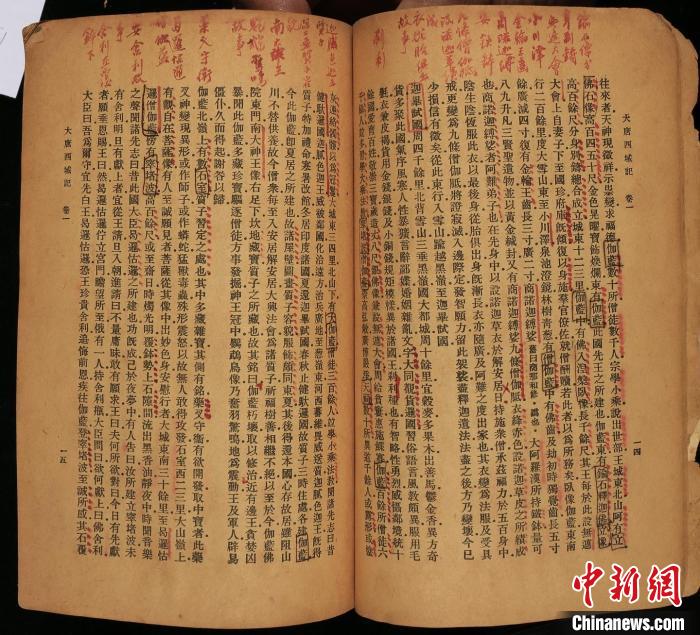 大唐西域記 卷一
一四
往來者天神現徵祥示祟變求福德伽藍數十所僧徒數千人宗學小乘說出世部王城東北山阿有立
佛石像高百四五十尺金色晃曜寶飾煥爛東有伽藍此國先王之所建也伽藍東有鍮石釋迦佛立像
高百餘尺分身別鑄總合成立城東十二三里伽藍中有佛入涅槃臥像長千餘尺其王每於此設無遮
大會上自妻子下至國珍府庫既傾復以身施羣官僚佐就僧酬贖若此者以為所務矣臥像伽藍東南
行二百餘里度大雪山東至小川澤泉池澄鏡林樹青葱有僧伽藍中有佛齒及劫初時獨覺齒長五寸
餘廣減四寸復有金輪王齒長三寸廣二寸商諾迦縛娑舊曰商那和修訛也大阿羅漢所持鐵鉢量可
八九升凡三賢聖遺物並以黃金緘封又有商諾迦縛娑九條僧伽胝衣絳赤色設諾迦草皮之所績成
也商諾迦縛娑者阿難弟子也在先身中以設諾迦草衣於解安居日持施衆僧承茲福力於五百身中
陰生陰恆服此衣以最後身從胎俱出身既漸長衣亦隨廣及阿難之度出家也其衣變為法服及受具
戒更變為九條僧伽胝將證寂滅入邊際定發智願力留此袈裟盡釋迦遺法法盡之後方乃變壞今已
少損信有徵矣從此東行入雪山踰越黑嶺至迦畢試國
迦畢試國周四千餘里北背雪山三垂黑嶺國大都城周十餘里宜穀麥多果木出善馬鬱金香異方奇
貨多聚此國氣序風寒人性暴獷言辭鄙褻婚姻雜亂文字大同覩貨邏國習俗語言風教頗異服用毛
氎衣兼皮褐貨用金錢銀錢及小銅錢規矩模樣異於諸國王窣利種也有智略性勇烈威懾鄰境統十
餘國愛育百姓敬崇三寶歲造丈八尺銀佛像兼設無遮大會周給貧窶惠施鰥寡伽藍百餘所僧徒六
廣博嚴淨天祠數十所異道千餘人或露形或塗
灰連絡髑髏以為冠鬘大城東三四里北山下有大伽藍僧徒三百餘人並學小乘法教聞諸先志曰昔
健馱邏國迦膩色迦王威被鄰國化洽遠方治兵廣地至葱嶺東河西蕃維畏威送質迦膩色迦王既得
質子特加禮命寒暑改館冬居印度諸國夏還迦畢試國春秋止健馱邏國故質子三時住處各建伽藍
今此伽藍即夏居之所建也故諸屋壁圖畫質子容貌服飾頗同東夏其後得還本國心存故居雖阻山
川不替供養故今僧衆每至入安居解安居大興法會為諸質子祈福樹善相繼不絕以至於今伽藍佛
院東門南大神王像右足下坎地藏寶質子之所藏也故其銘曰伽藍朽壞取以修治近有邊王貪婪凶
暴聞此伽藍多藏珍寶驅逐僧徒方事發掘神王冠中鸚鵡鳥像乃奮羽驚鳴地為震動王及軍人辟易
僵仆久而得起謝咎以歸
伽藍北嶺上有數石室質子習定之處也其中多藏雜寶其側有銘藥叉守衛有欲開發取中寶者此藥
叉神變現異形或作師子或作蟒蛇猛獸毒蟲殊形震怒以故無人敢得攻發石室西二三里大山嶺上
有觀自在菩薩像有人至誠願見者菩薩從其像中出妙色身安慰行者大城東南三十餘里至曷邏怙
邏僧伽藍傍有窣堵波高百餘尺或至齋日時燭光明覆鉢勢上石隙間流出黑香油靜夜中時聞音樂
之聲聞諸先志曰昔此國大臣曷邏怙邏之所建也功既成已於夜夢中有人告曰汝所建立窣堵波未
有舍利明旦有獻上者宜從王請旦入朝進請曰不量庸昧敢有願求王曰夫何所欲對曰今日有先獻
者願垂恩賜王曰然曷邏怙邏佇立宮門瞻望所至俄有一人持舍利瓶大臣問曰欲何獻上曰佛舍利
大臣曰吾為爾守宜先白王曷邏怙邏恐王珍貴舍利追悔前恩疾往伽藍登窣堵波至誠所感其石覆
大唐西域記 卷一
一五
中新网
Chinanews.com